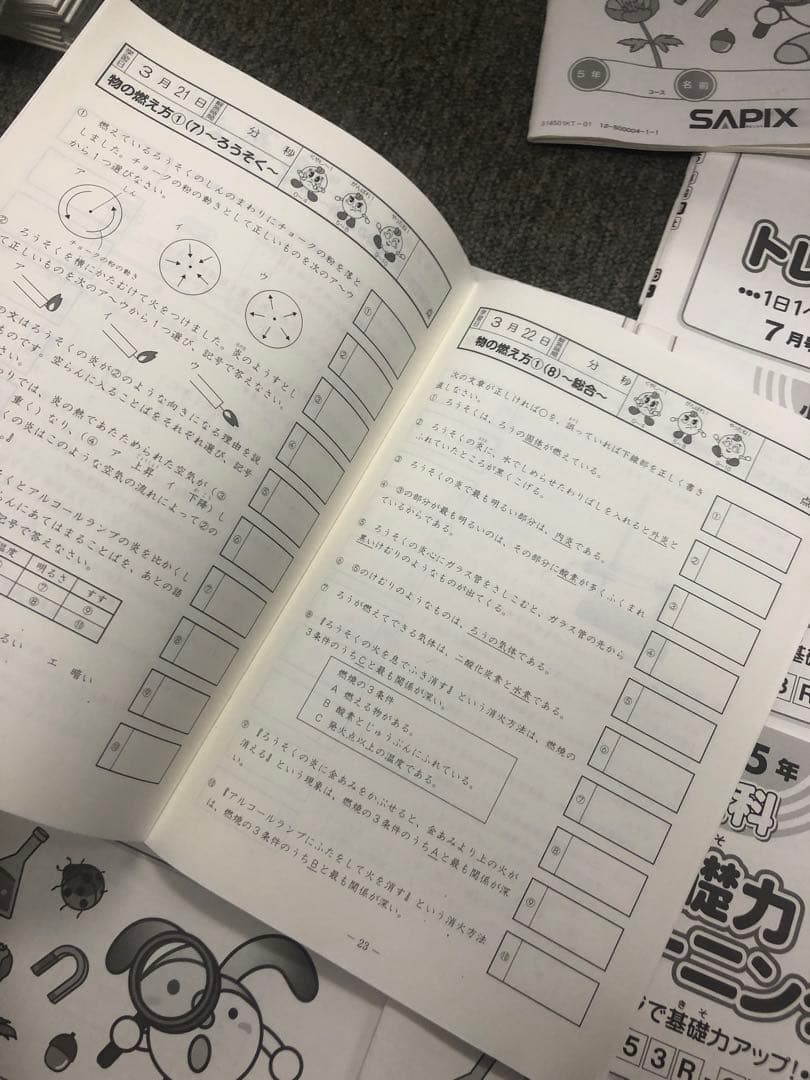 3月21日
分　秒
物の燃え方①(7)～ろうそく～
① 燃えているろうそくのしんのまわりにチョークの粉を落と
しました。チョークの粉の動きとして正しいものを次のア～ウ
から１つ選びなさい。
ア
しん
イ
ウ
チョークの粉の動き
② ろうそくを横にかたむけて火をつけました。炎のようすとし
て正しいものを次のア～ウから１つ選び、記号で答えなさい。
ア
イ
ウ
の文はろうそくの炎が②のような向きになる理由を説
ものです。空らんに入ることばをそれぞれ選び、記号
さい。
わりでは、炎の熱であたためられた空気が（③
重く）なり、（④ ア 上昇 イ 下降）し
くの炎はこのような空気の流れによって②の
』
くとアルコールランプの炎を比かくし
らんにあてはまることばを、あとの語
記号で答えなさい。
温度 明るさ すす
⑦ ⑨
⑧ ⑩
るい エ 暗い
①
②
③
④
⑤
⑥
⑦
⑧
⑨
⑩
3月22日
分　秒
物の燃え方①(8)～総合～
点
次の文章が正しければ○を、誤っていれば下線部を正しく書き
直しなさい。
① ろうそくは、ろうの固体が燃えている。
② ろうそくの炎に、水でしめらせたわりばしを入れると外炎と
ふれていたところが黒くこげる。
③ ろうそくの炎で最も明るい部分は、内炎である。
④ ③の部分が最も明るいのは、その部分に酸素が多くふくまれ
ているからである。
⑤ ろうそくの炎心にガラス管をさしこむと、ガラス管の先から
黒いけむりのようなものが出てくる。
⑥ ⑤のけむりのようなものは、ろうの気体である。
⑦ ろうが燃えてできる気体は、二酸化炭素と水素である。
⑧ 『ろうそくの火を息でふき消す』という消火方法は、燃焼の
３条件のうちCと最も関係が深い。
燃焼の３条件
A 燃える物がある。
B 酸素とじゅうぶんにふれている。
C 発火点以上の温度である。
⑨ 『ろうそくの炎に金あみをかぶせると、金あみより上の火が
消える』という現象は、燃焼の３条件のうちAと最も関係が深
い。
⑩ 『アルコールランプにふたをして火を消す』という消火方法
は、燃焼の３条件のうちBと最も関係が深い。
①
②
③
④
⑤
⑥
⑦
⑧
⑨
⑩
－23－
5年
コース
名前
SAPIX
トレ
•••1日1ペ
7月
5年
科
礎力
ーニン
で基礎力アップ！
53R